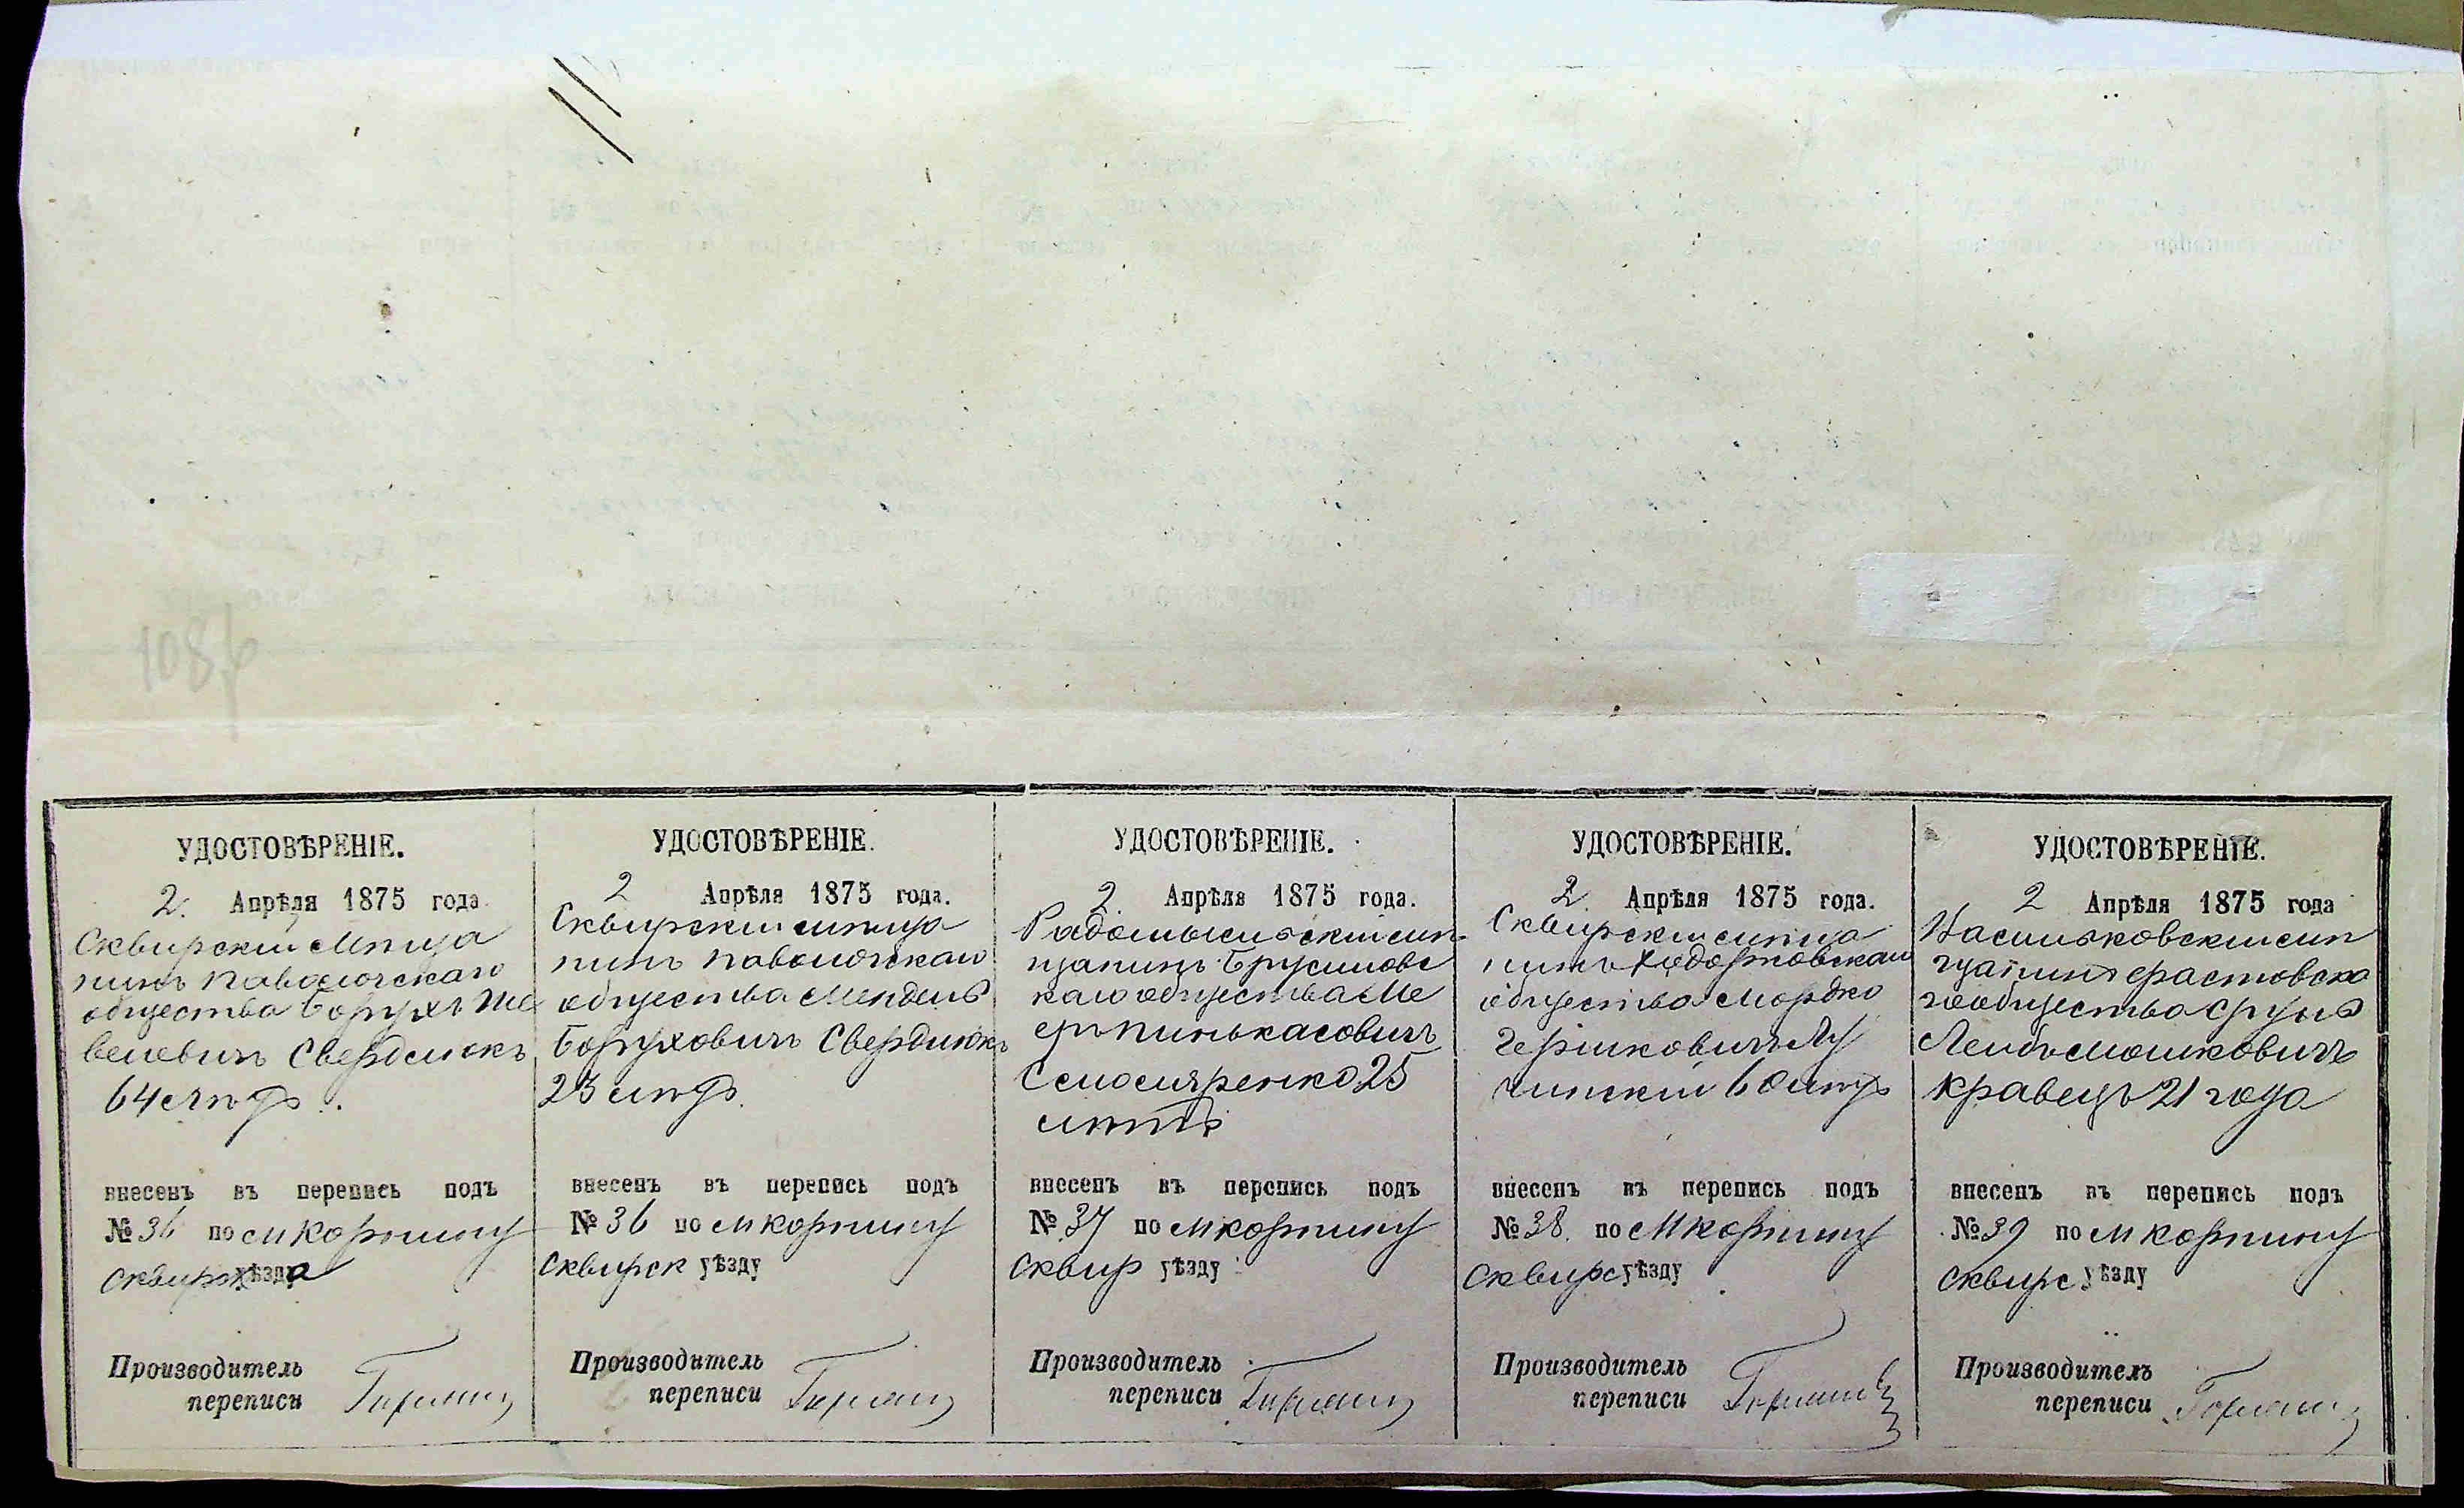 11
108
УДОСТОВѢРЕНІЕ.
2. Апрѣля 1875 года.
Сквирскій мѣща
нинъ Паволочскаго
общества Борухъ Ше
велевичъ Свердликъ
64 лѣтъ.
внесенъ въ перепись подъ
№ 36 по м Корнину
Сквирск уѣзда
Производитель
переписи
УДОСТОВѢРЕНІЕ.
2 Апрѣля 1875 года.
Сквирскій мѣща
нинъ Паволочскаго
общества Мендель
Боруховичъ Свердликъ
23 лѣтъ.
внесенъ въ перепись подъ
№ 36 по м Корнину
Сквирск уѣзду
Производитель
переписи
УДОСТОВѢРЕНІЕ.
2. Апрѣля 1875 года.
Радомысльскій мѣ
щанинъ Брусиловс
каго общества Ме
еръ Пинькасовичъ
25
лѣтъ
внесенъ въ перепись подъ
№ 37 по м Корнину
Сквир уѣзду
Производитель
переписи
УДОСТОВѢРЕНІЕ.
2. Апрѣля 1875 года.
Сквирскій мѣща
нинъ Ходорковскаго
общества Мордко
Гершковичъ Лу
чинскій 60 лѣтъ
внесенъ въ перепись подъ
№ 38. по м Корнину
Сквирс уѣзду
Производитель
переписи
УДОСТОВѢРЕНІЕ.
2 Апрѣля 1875 года
Васильковскій мѣ
щанинъ Фастовска
го общества Сруль
Лейбъ Мошковичъ
Кравецъ 21 года
внесенъ въ перепись подъ
№ 39 по м Корнину
Сквирс уѣзду
Производитель
переписи